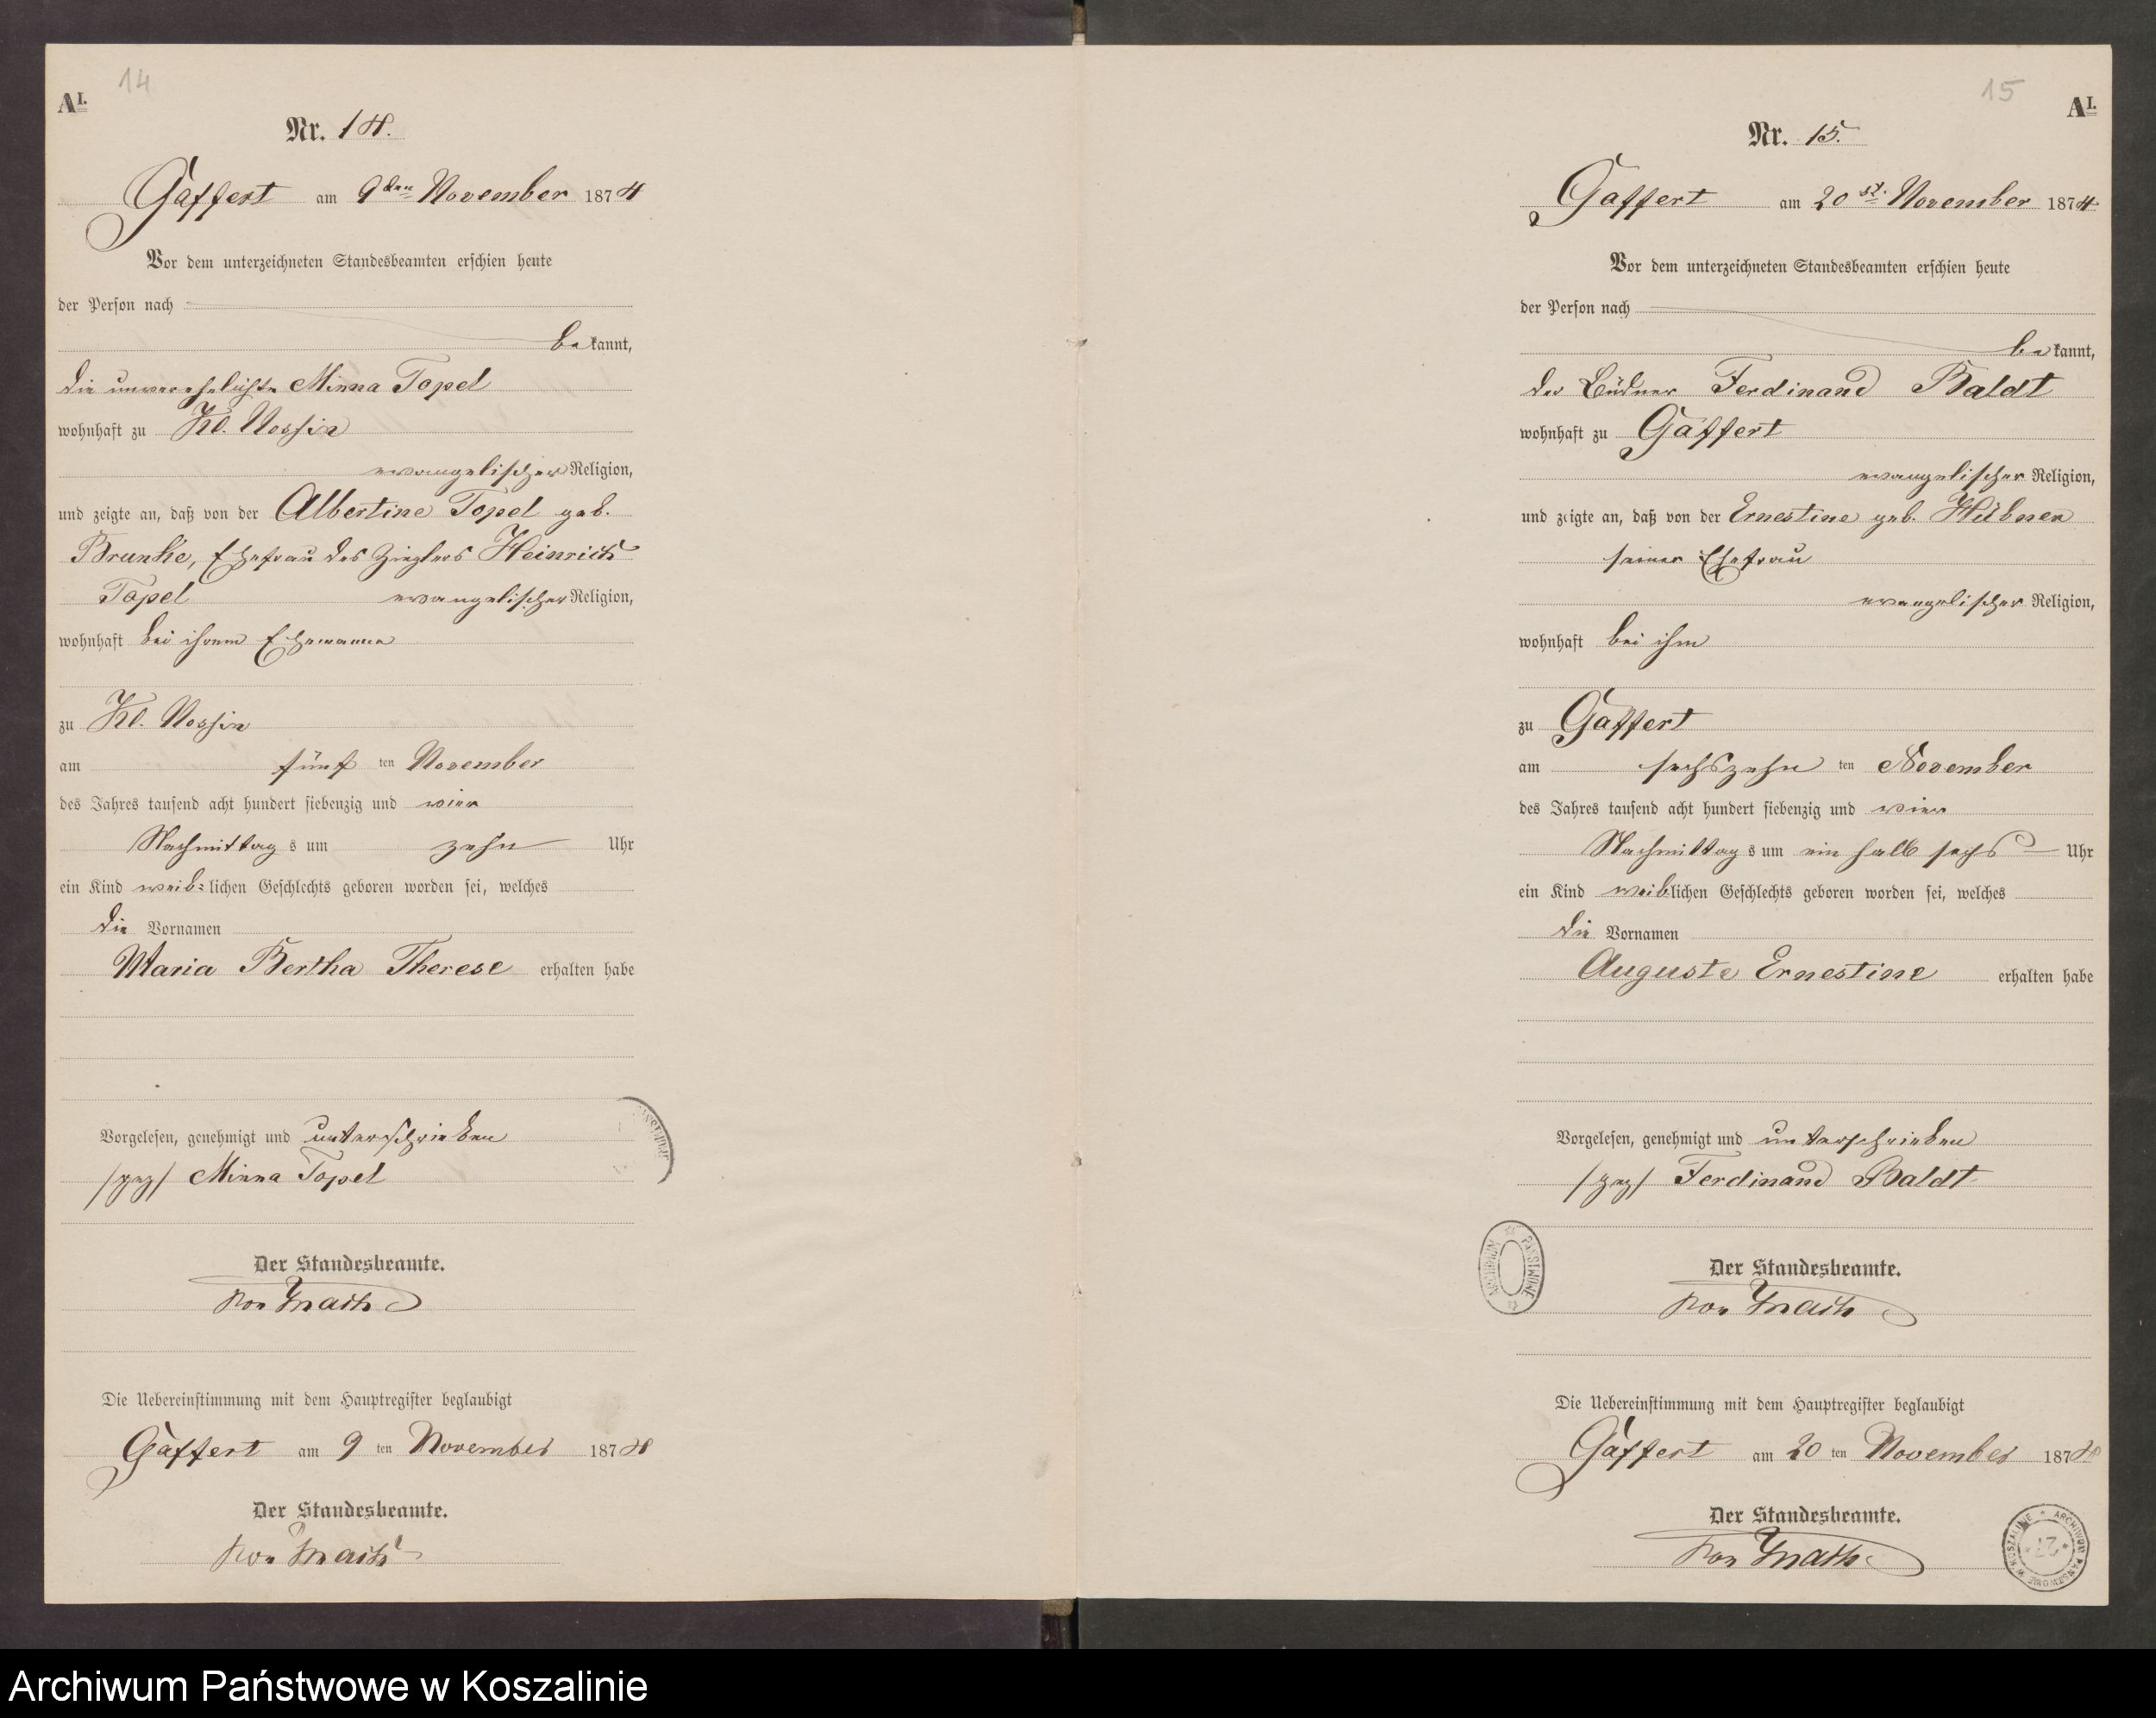 14
A I.
Nr. 14.
Gaffert am 9ten November 1874
Vor dem unterzeichneten Standesbeamten erschien heute
der Person nach
bekannt,
die unverehelichte Minna Topel
wohnhaft zu Kl. Nossin
evangelischer Religion,
und zeigte an, daß von der Albertine Topel geb.
Brunke, Ehefrau des Zieglers Heinrich
Topel evangelischer Religion,
wohnhaft bei ihrem Ehemanne
zu Kl. Nossin
am fünf ten November
des Jahres tausend acht hundert siebenzig und vier
Nachmittags um zehn Uhr
ein Kind weib=lichen Geschlechts geboren worden sei, welches
die Vornamen
Maria Bertha Therese erhalten habe
Vorgelesen, genehmigt und unterschrieben
/gez/ Minna Topel
Der Standesbeamte.
von
Die Uebereinstimmung mit dem Hauptregister beglaubigt
Gaffert am 9 ten November 1874
Der Standesbeamte.
von
15
A I.
Nr. 15.
Gaffert am 20st. November 1874
Vor dem unterzeichneten Standesbeamten erschien heute
der Person nach
bekannt,
der Büdner Ferdinand Baldt
wohnhaft zu Gaffert
evangelischer Religion,
und zeigte an, daß von der Ernestine geb. Hübner
seiner Ehefrau
evangelischer Religion,
wohnhaft bei ihm
zu Gaffert
am sechszehn ten November
des Jahres tausend acht hundert siebenzig und vier
Nachmittags um ein halb sechs Uhr
ein Kind weiblichen Geschlechts geboren worden sei, welches
die Vornamen
Auguste Ernestine erhalten habe
Vorgelesen, genehmigt und unterschrieben
/gez/ Ferdinand Baldt
ARCHIWUM PAŃSTWOWE
Der Standesbeamte.
von
Die Uebereinstimmung mit dem Hauptregister beglaubigt
Gaffert am 20 ten November 1874
Der Standesbeamte.
von
ARCHIWUM PAŃSTWOWE W KOSZALINIE
Archiwum Państwowe w Koszalinie